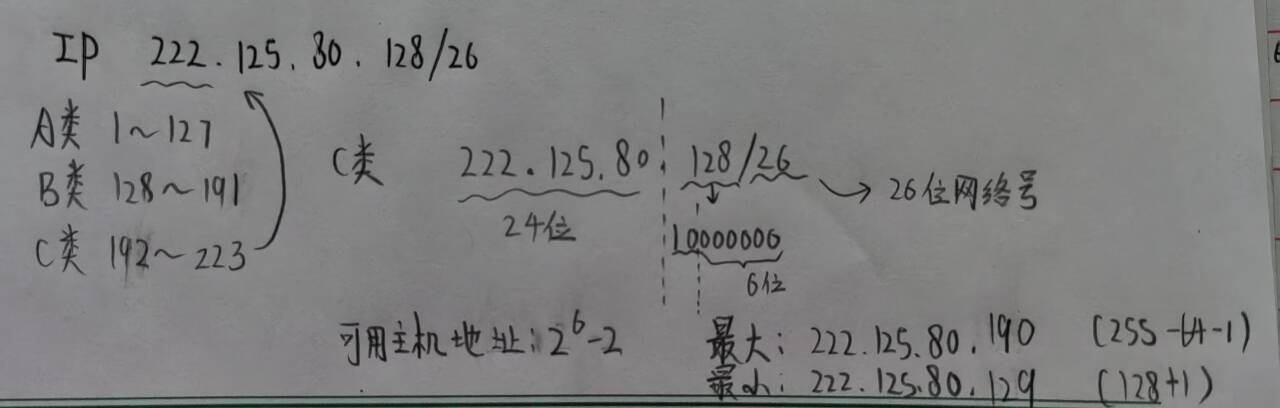 IP 222.125.80.128/26
A类 1~127
B类 128~191
C类 192~223
C类 222.125.80.128/26 → 26位网络号
24位
10000000
6位
可用主机地址: 2^6-2
最大: 222.125.80.190 (255-64-1)
最小: 222.125.80.129 (128+1)